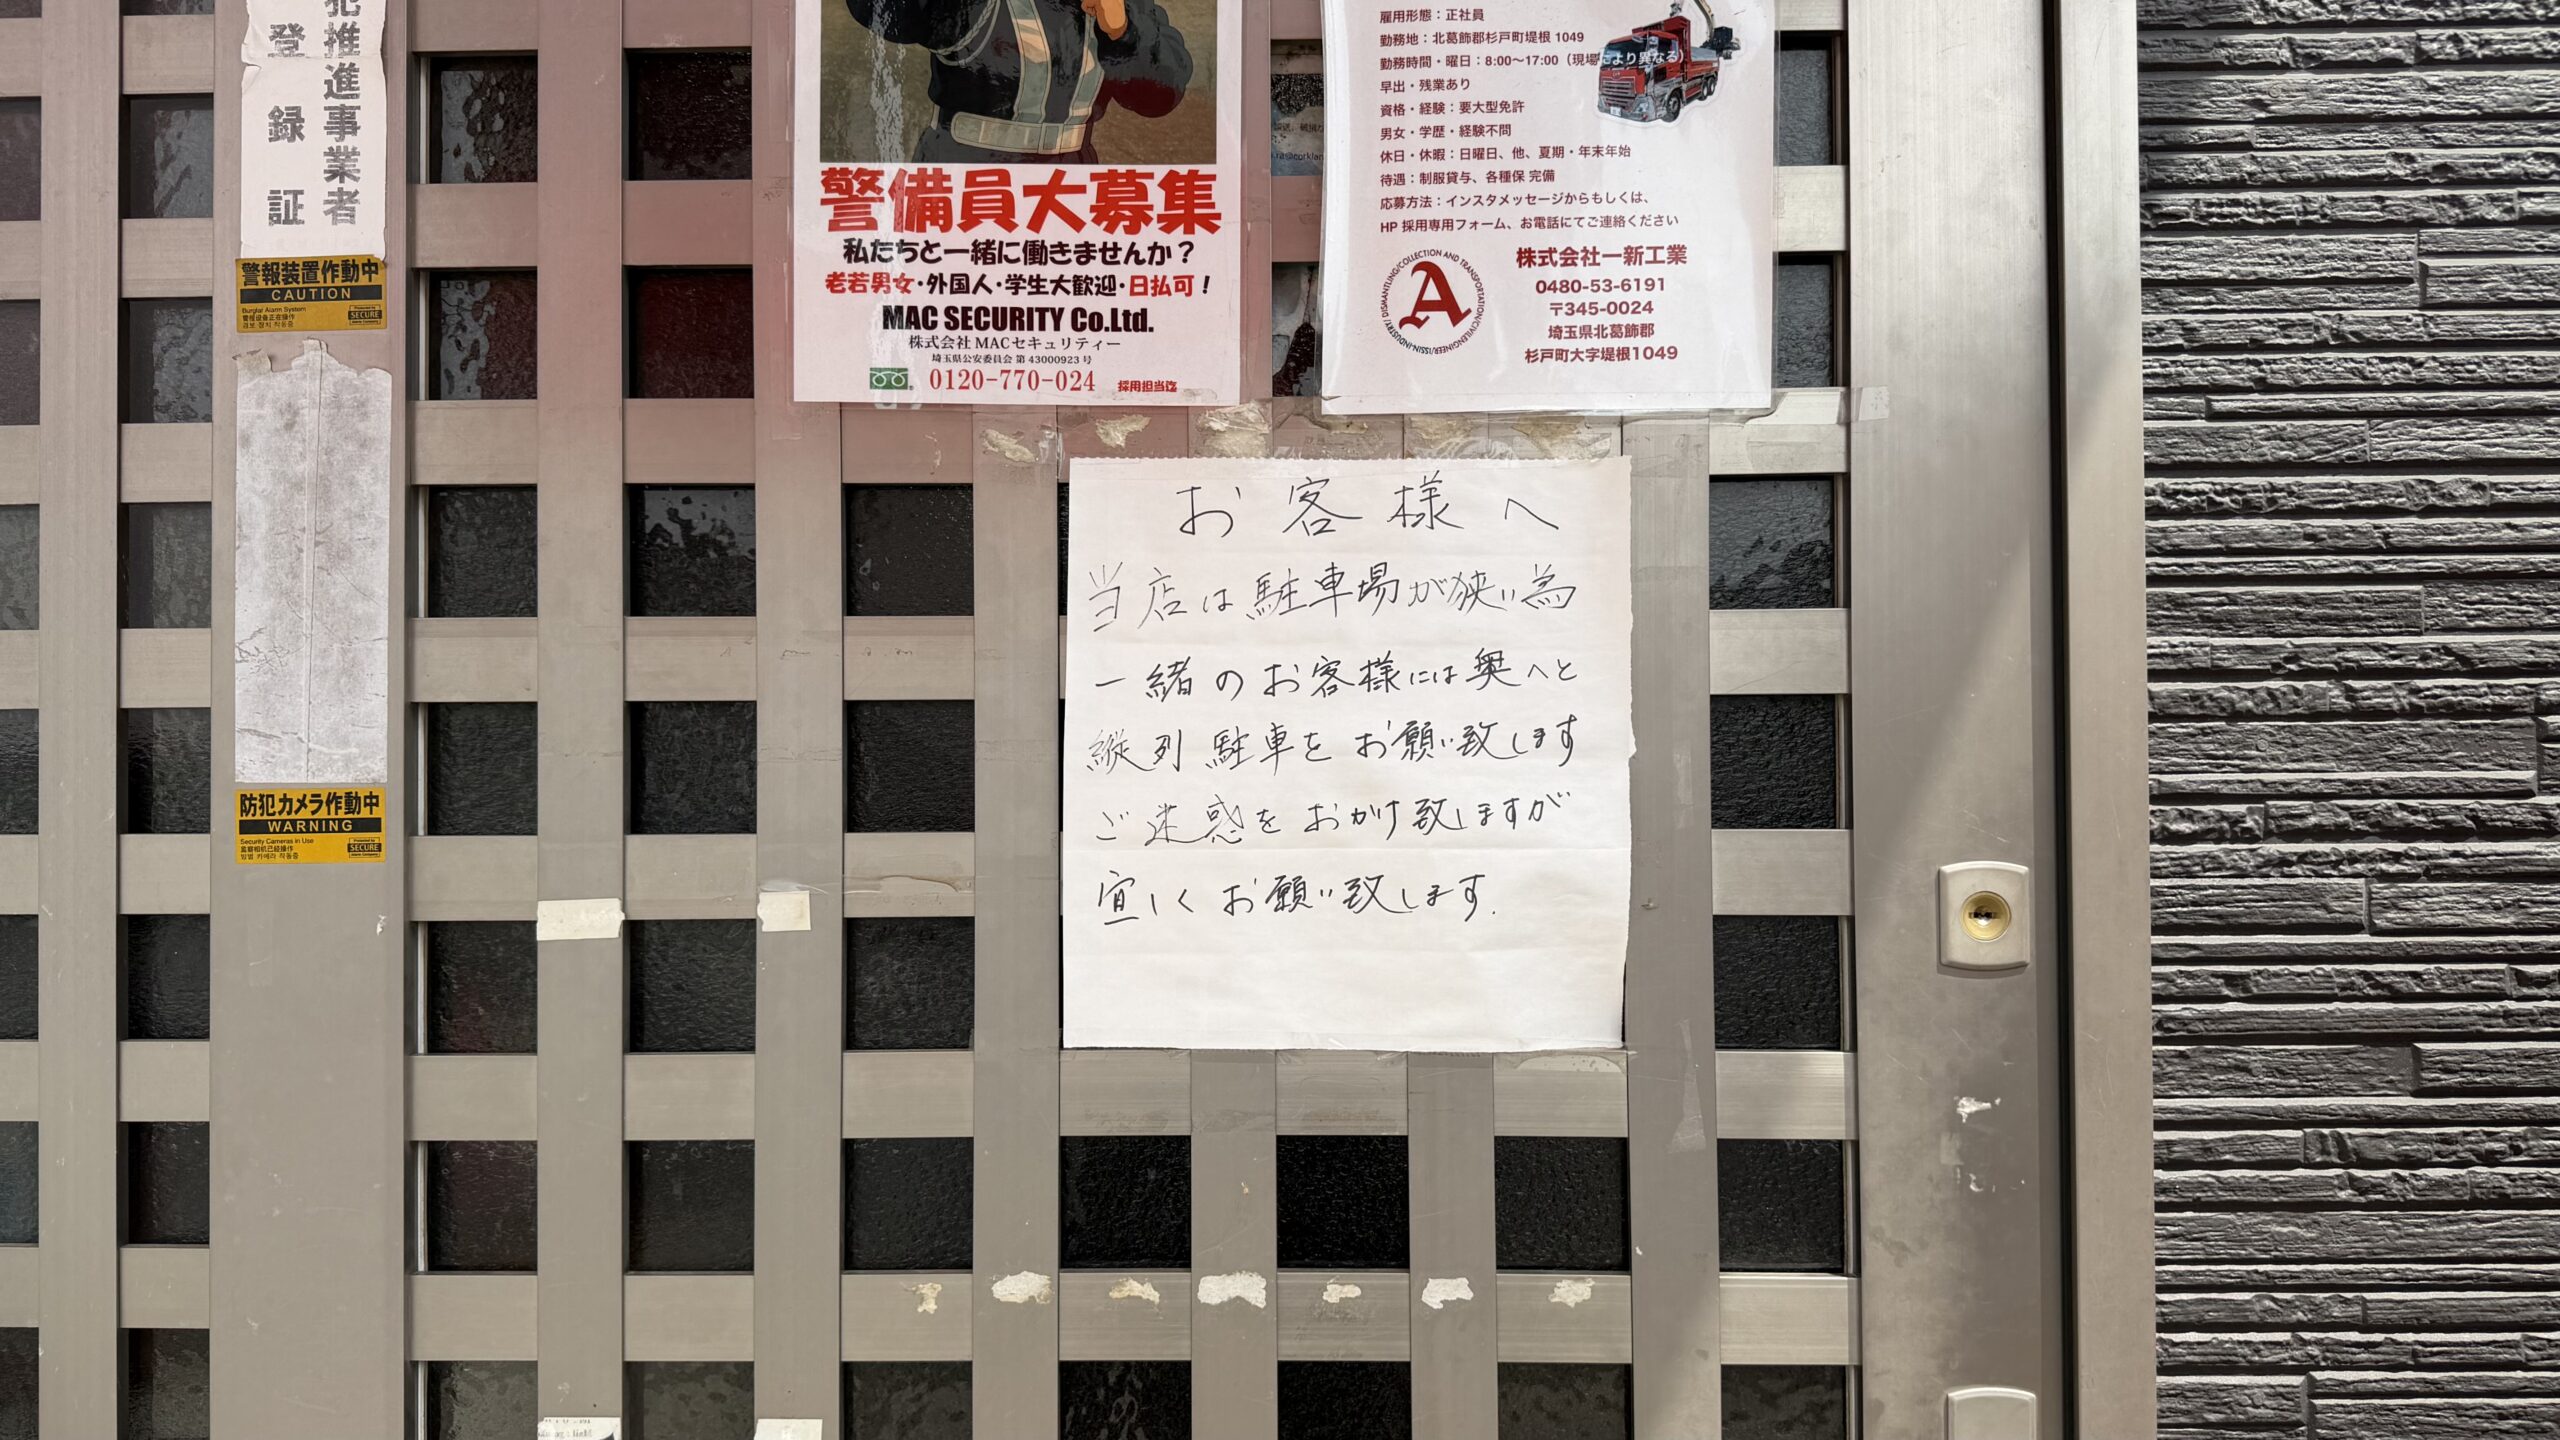 犯推進事業者
登録証
警報装置作動中
CAUTION
Burglar Alarm System
SECURE
防犯カメラ作動中
WARNING
Security Cameras in Use
SECURE
警備員大募集
私たちと一緒に働きませんか？
老若男女・外国人・学生大歓迎・日払可！
MAC SECURITY Co.Ltd.
株式会社 MACセキュリティー
埼玉県公安委員会 第 43000923 号
0120-770-024 採用担当迄
雇用形態：正社員
勤務地：北葛飾郡杉戸町堤根 1049
勤務時間・曜日：8:00〜17:00（現場により異なる）
早出・残業あり
資格・経験：要大型免許
男女・学歴・経験不問
休日・休暇：日曜日、他、夏期・年末年始
待遇：制服貸与、各種保 完備
応募方法：インスタメッセージからもしくは、
HP 採用専用フォーム、お電話にてご連絡ください
A
株式会社一新工業
0480-53-6191
〒345-0024
埼玉県北葛飾郡
杉戸町大字堤根1049
お客様へ
当店は駐車場が狭い為
一緒のお客様には奥へと
縦列駐車をお願い致します
ご迷惑をおかけ致しますが
宜しくお願い致します.